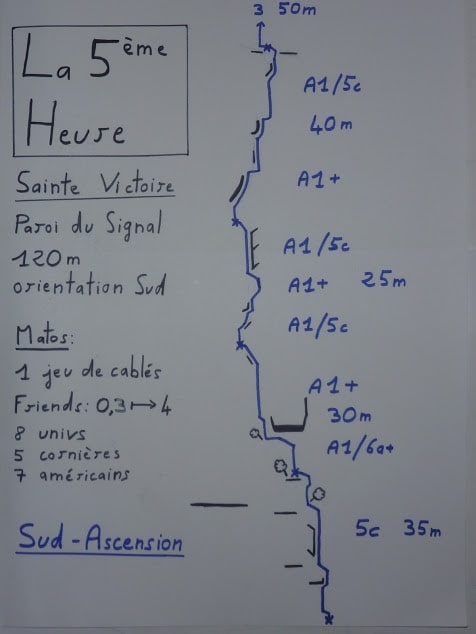 3 50m
La 5ème
Heure
Sainte Victoire
Paroi du Signal
120m
orientation Sud
Matos:
1 jeu de cablés
Friends: 0,3↦4
8 univs
5 cornières
7 américains
Sud-Ascension
A1/5c
40m
A1+
A1/5c
A1+ 25m
A1/5c
A1+
30m
A1/6a+
5c 35m